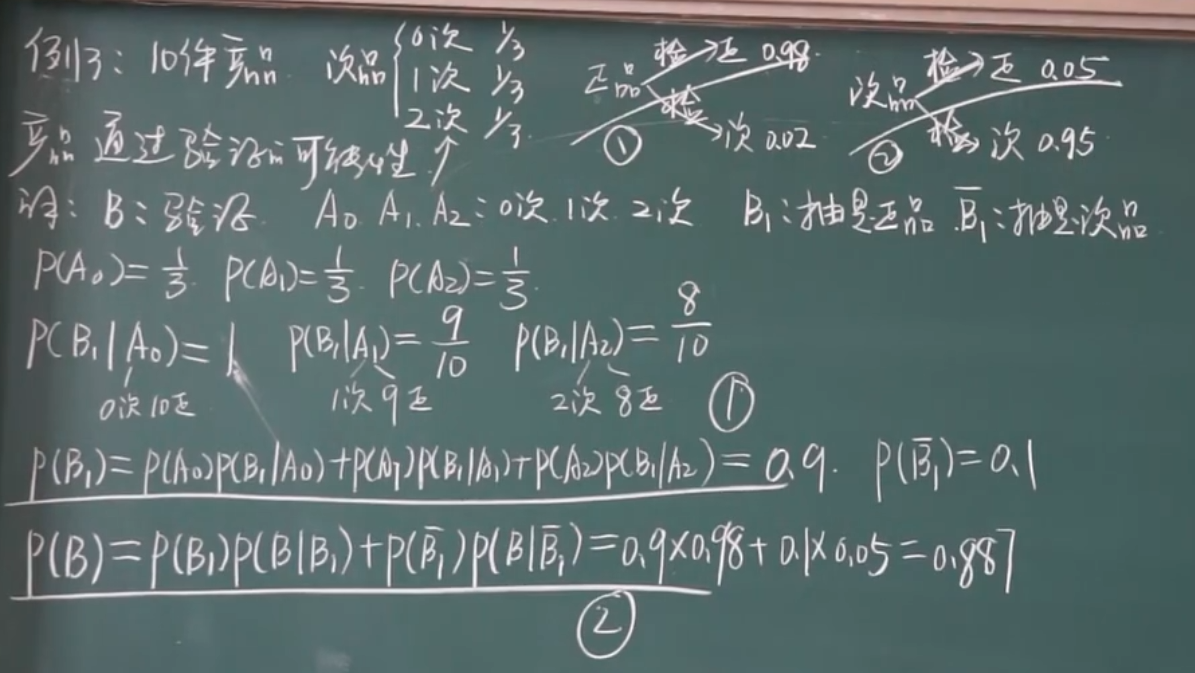 例3：10件产品 次品 { 0次 1/3
1次 1/3
2次 1/3
正品 检→正 0.98
检→次 0.02
①
次品 检→正 0.05
检→次 0.95
②
产品通过验收的可能性↑
设：B：验收 A₀ A₁ A₂：0次 1次 2次 B₁：抽是正品 B̅₁：抽是次品
P(A₀)=1/3 P(A₁)=1/3 P(A₂)=1/3
P(B₁|A₀)=1 P(B₁|A₁)=9/10 P(B₁|A₂)=8/10
0次10正 1次9正 2次8正 ①
P(B₁)=P(A₀)P(B₁|A₀)+P(A₁)P(B₁|A₁)+P(A₂)P(B₁|A₂)=0.9. P(B̅₁)=0.1
P(B)=P(B₁)P(B|B₁)+P(B̅₁)P(B|B̅₁)=0.9×0.98+0.1×0.05=0.887
②